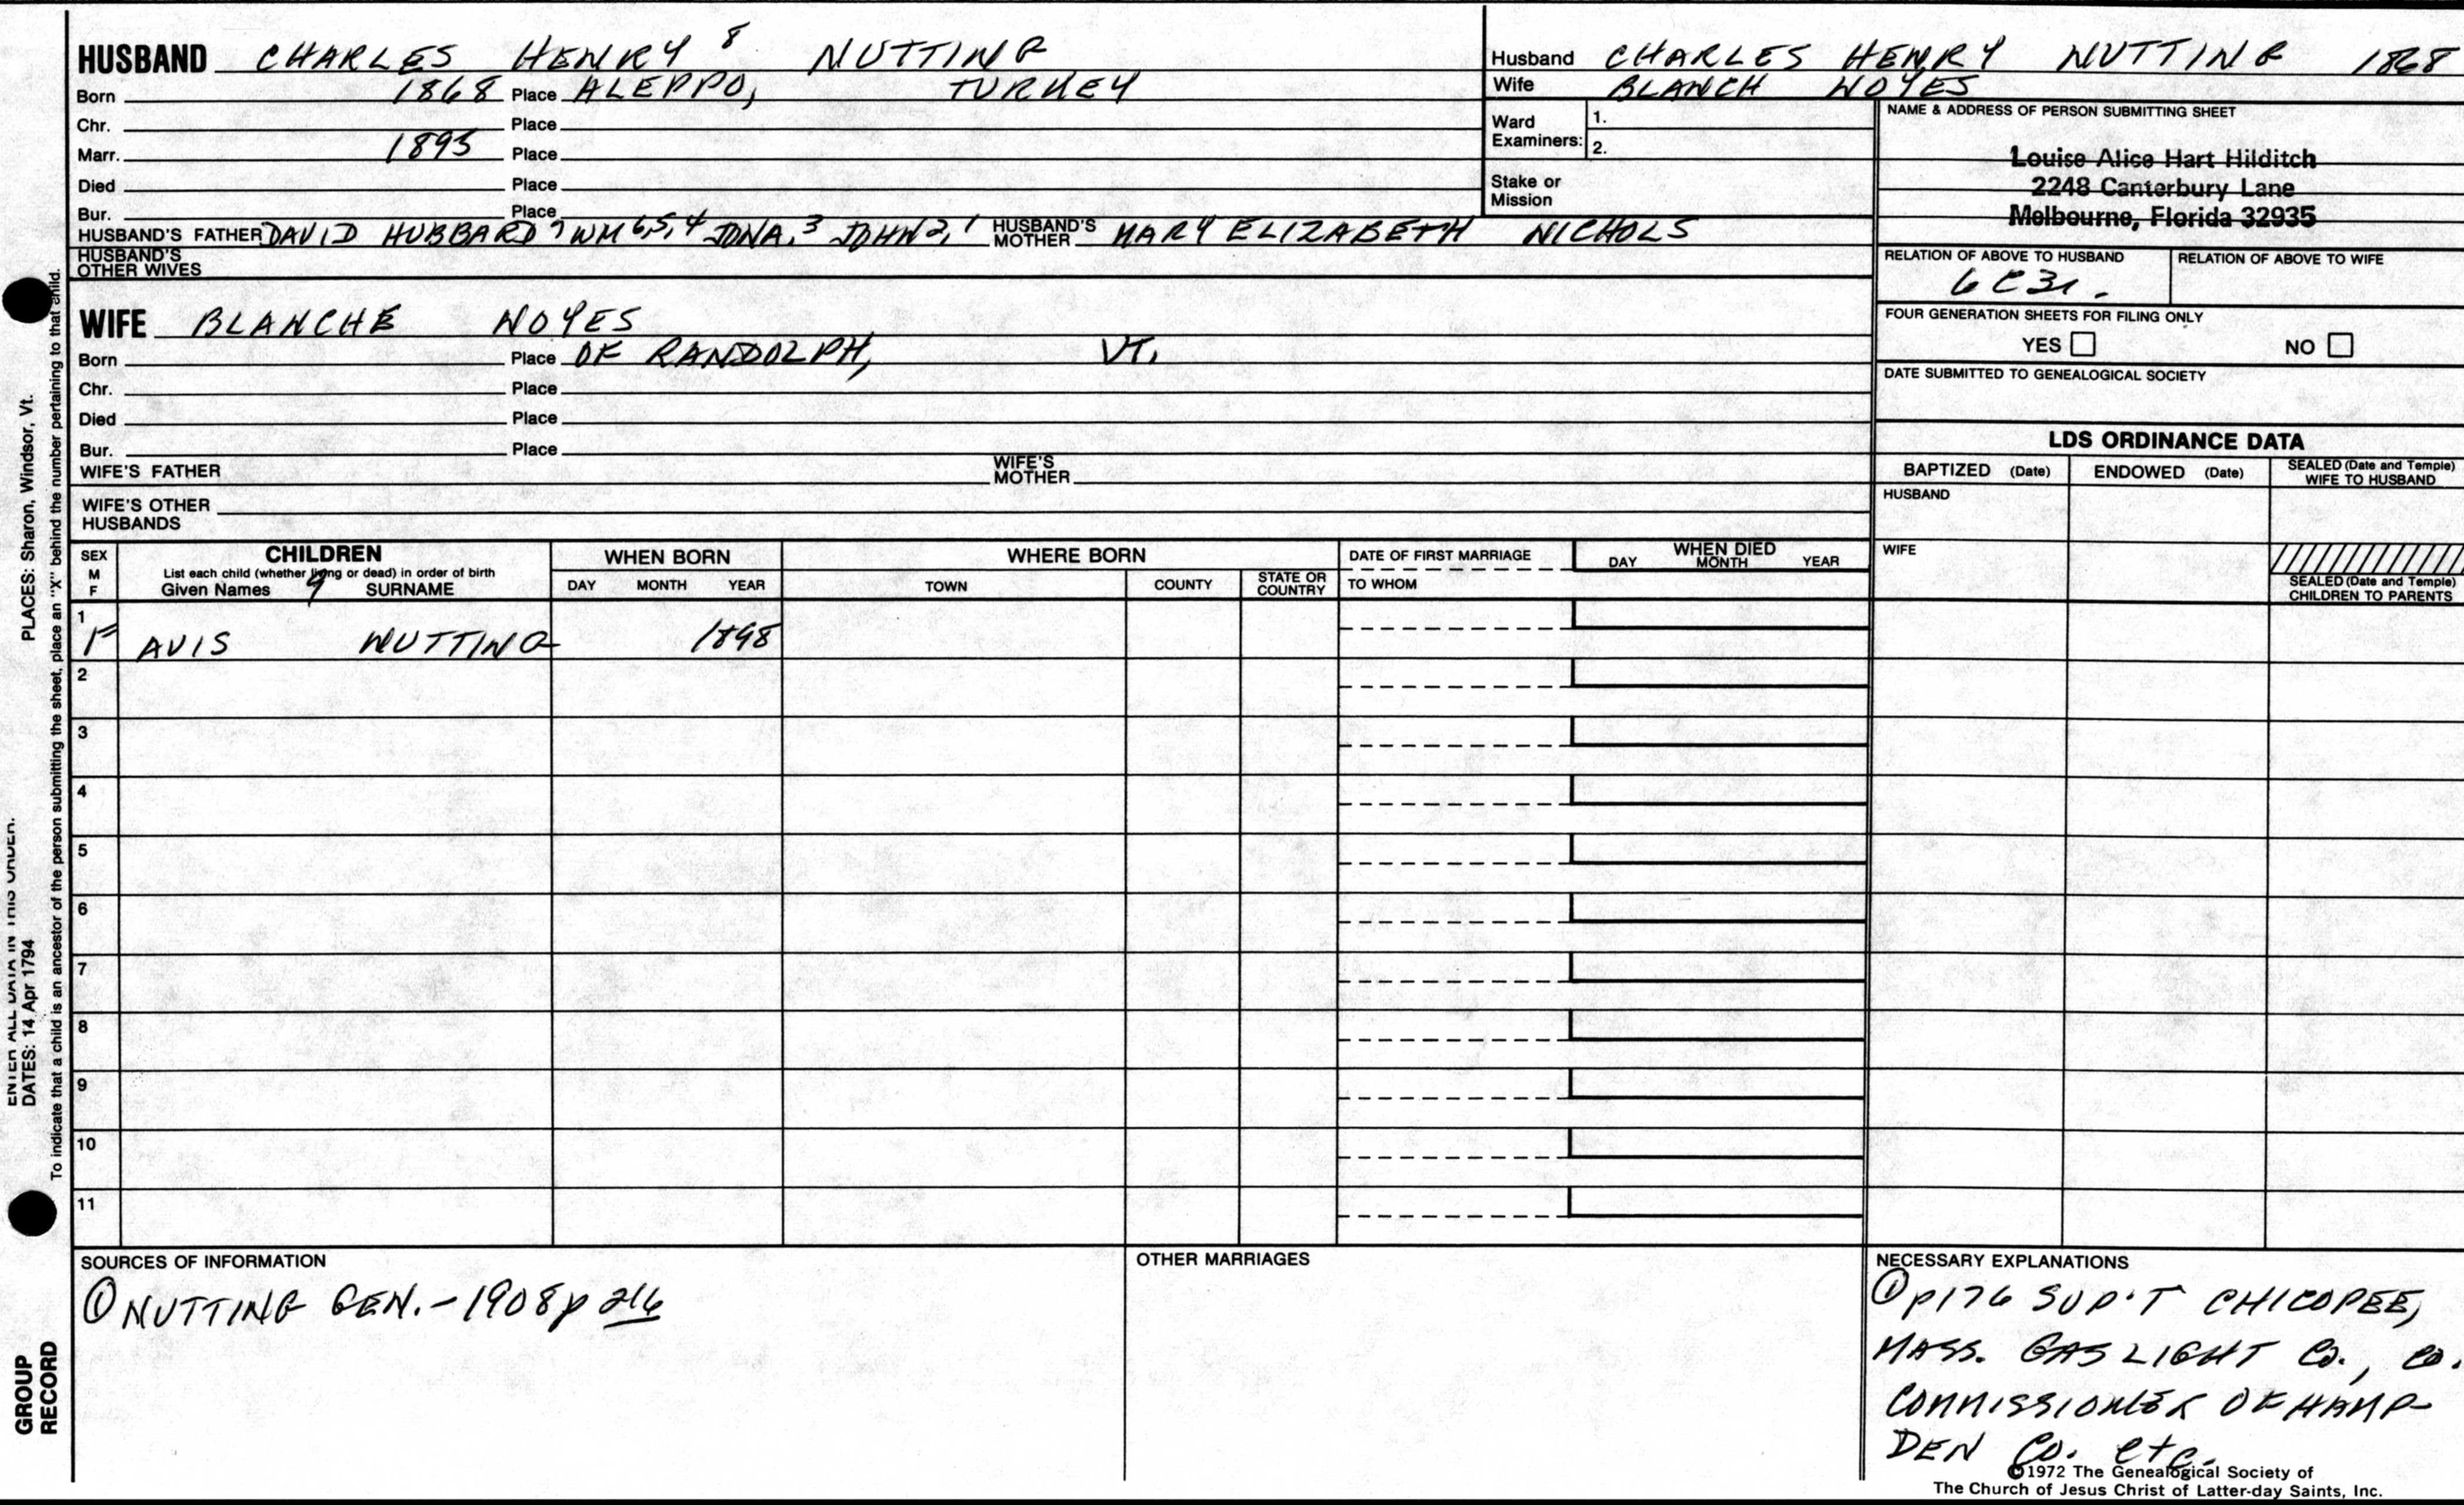 HUSBAND CHARLES HENRY 8 NUTTING
Born 1868 Place ALEPPO, TURKEY
Chr. Place
Marr. 1895 Place
Died Place
Bur. Place
HUSBAND'S FATHER DAVID HUBBARD 7 WM 6,5,4 JONA,3 JOHN 2,1 HUSBAND'S MOTHER MARY ELIZABETH NICHOLS
HUSBAND'S OTHER WIVES
Husband CHARLES HENRY NUTTING 1868
Wife BLANCH NOYES
Ward Examiners: 1.
2.
Stake or Mission
NAME & ADDRESS OF PERSON SUBMITTING SHEET
Louise Alice Hart Hilditch
2248 Canterbury Lane
Melbourne, Florida 32935
RELATION OF ABOVE TO HUSBAND RELATION OF ABOVE TO WIFE
6C3r.
FOUR GENERATION SHEETS FOR FILING ONLY
YES NO
DATE SUBMITTED TO GENEALOGICAL SOCIETY
WIFE BLANCHE NOYES
Born Place OF RANDOLPH, VT.
Chr. Place
Died Place
Bur. Place
WIFE'S FATHER WIFE'S MOTHER
WIFE'S OTHER HUSBANDS
LDS ORDINANCE DATA
BAPTIZED (Date) ENDOWED (Date) SEALED (Date and Temple) WIFE TO HUSBAND
HUSBAND
WIFE
SEALED (Date and Temple) CHILDREN TO PARENTS
SEX M F
CHILDREN
List each child (whether living or dead) in order of birth
Given Names 9 SURNAME
WHEN BORN
DAY MONTH YEAR
WHERE BORN
TOWN COUNTY STATE OR COUNTRY
DATE OF FIRST MARRIAGE
TO WHOM
WHEN DIED
DAY MONTH YEAR
1
F AVIS NUTTING 1898
2
3
4
5
6
7
8
9
10
11
SOURCES OF INFORMATION
① NUTTING GEN. - 1908 p 216
OTHER MARRIAGES
NECESSARY EXPLANATIONS
① p176 SUP'T CHICOPEE,
MASS. GASLIGHT Co., Co.
COMMISSIONER OF HAMP-
DEN Co. etc.
©1972 The Genealogical Society of
The Church of Jesus Christ of Latter-day Saints, Inc.
GROUP
RECORD
ENTER ALL DATA IN THIS ORDER.
DATES: 14 Apr 1794 PLACES: Sharon, Windsor, Vt.
To indicate that a child is an ancestor of the person submitting the sheet, place an "X" behind the number pertaining to that child.